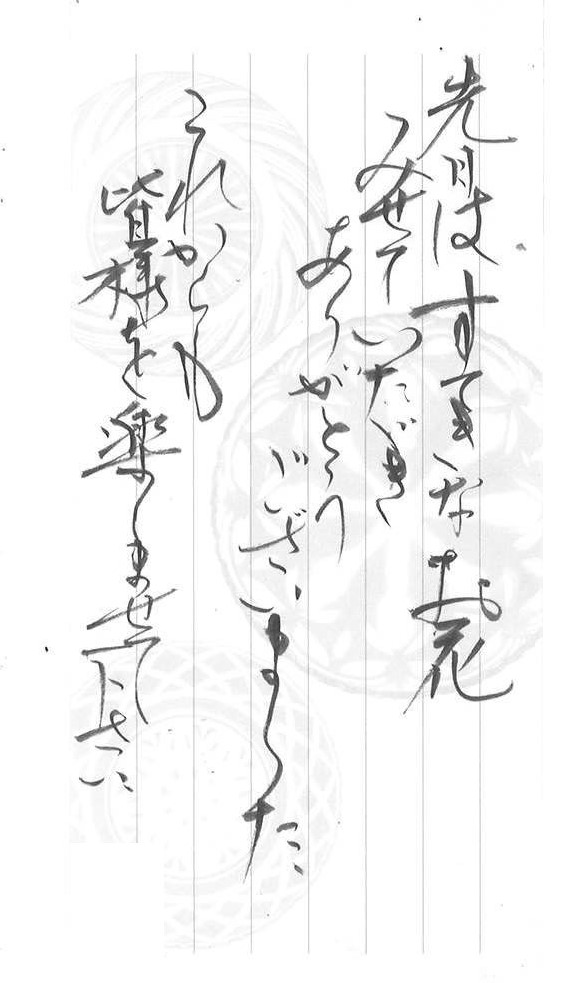 先日はすてきなお花
みせていただき
ありがとう
ございました
これからも
皆様を楽しませて下さい